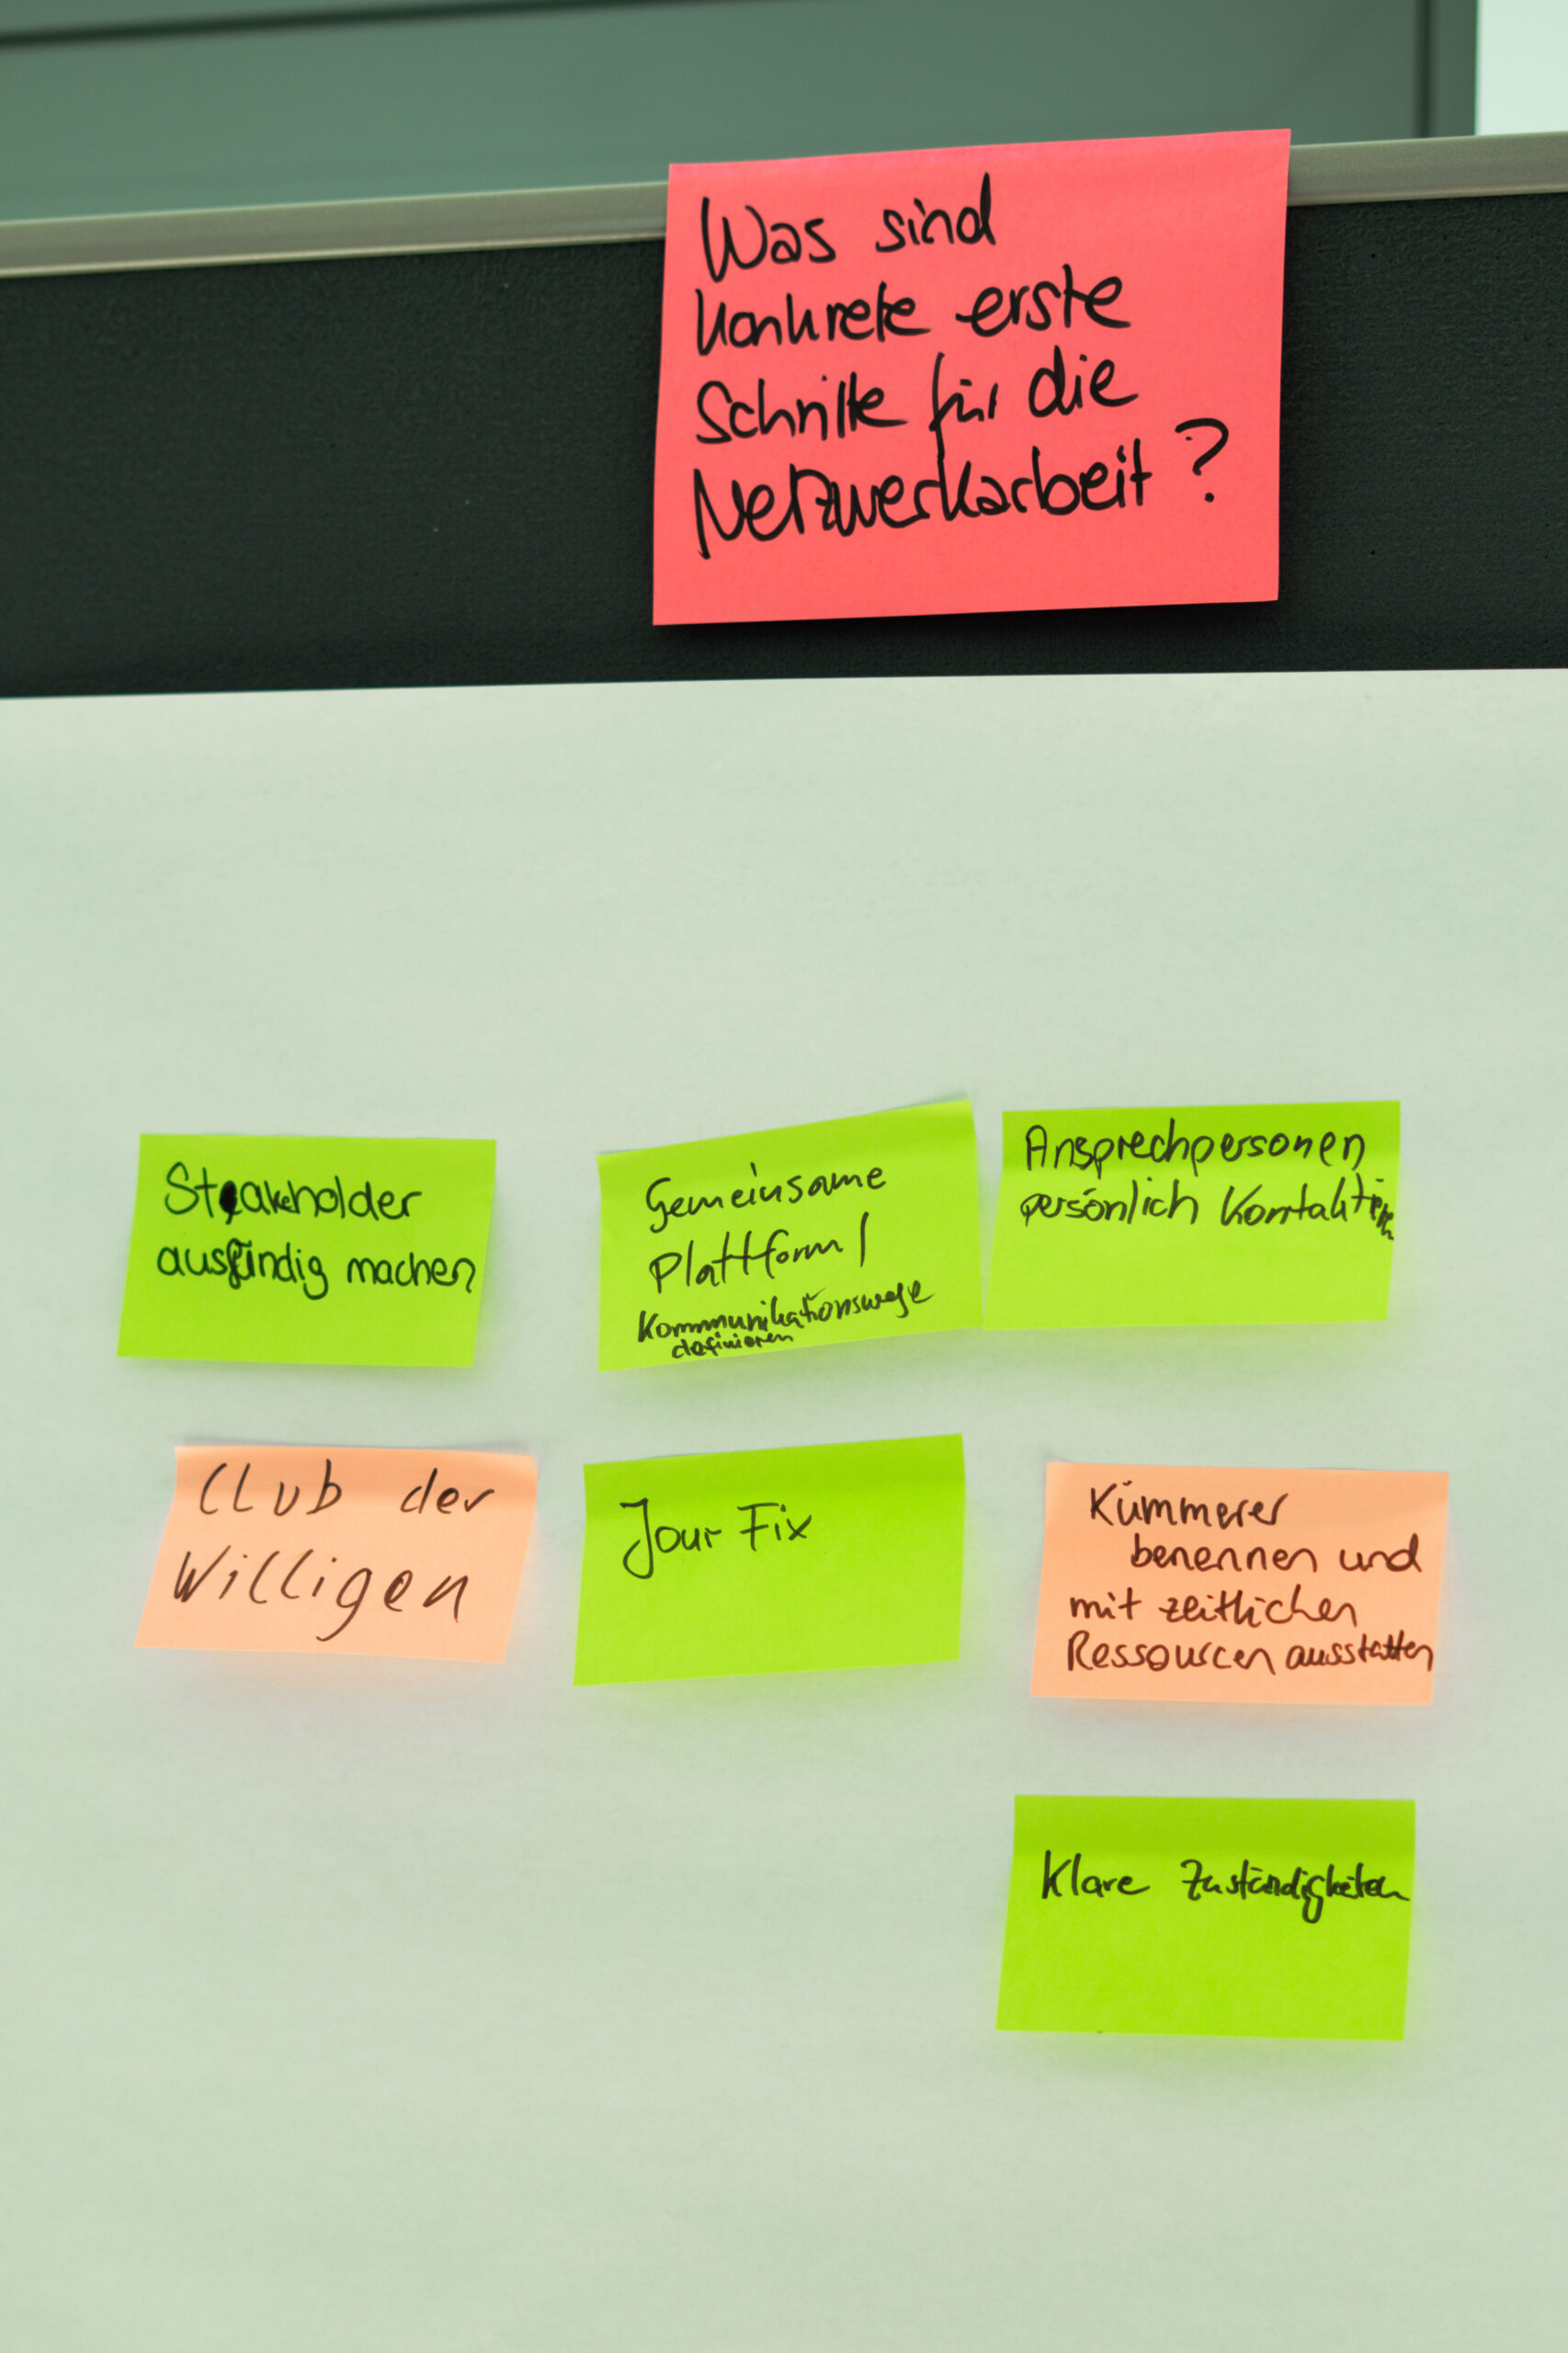 Was sind
konkrete erste
Schritte für die
Netzwerkarbeit?
Stakeholder
ausfindig machen
Gemeinsame
Plattform /
Kommunikationswege
definieren
Ansprechpersonen
persönlich kontaktieren
Club der
Willigen
Jour Fix
Kümmerer
benennen und
mit zeitlichen
Ressourcen ausstatten
Klare Zuständigkeiten